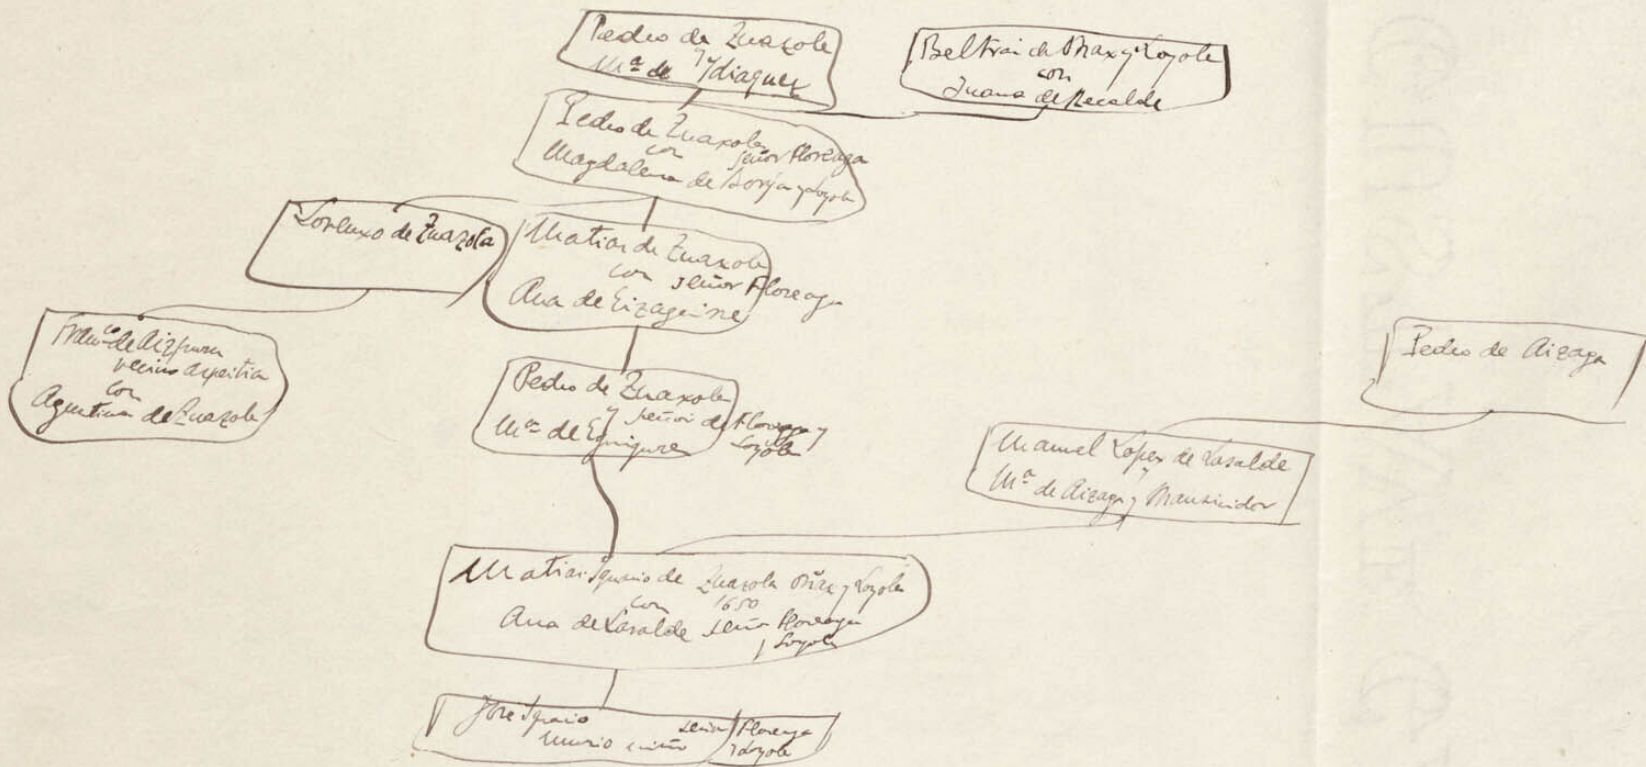 Pedro de Zuazola
y
Mª de Ydiaquez
Beltrai de Oñaz y Loyola
con
Juana de Recalde
Pedro de Zuazola
con señor Floreaga
Magdalena de Borja y Loyola
Lorenzo de Zuazola
Matias de Zuazola
con señor Floreaga
Ana de Eizaguirre
Franco de Aizpuru
vecino Azpeitia
con
Agustina de Zuazola
Pedro de Zuazola
y señor de Floreaga y
Mª de Eguiguren Loyola
Pedro de Aizaga
Manuel López de Lasalde
y
Mª de Aizaga y Mancicidor
Matias Ignacio de Zuazola Oñaz y Loyola
con 1650
Ana de Lasalde señor Floreaga
y Loyola
José Ignacio señor Floreaga
murio niño y Loyola